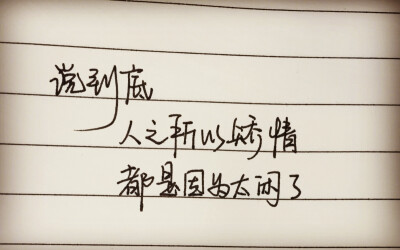 说到底
人之所以矫情
都是因为太闲了